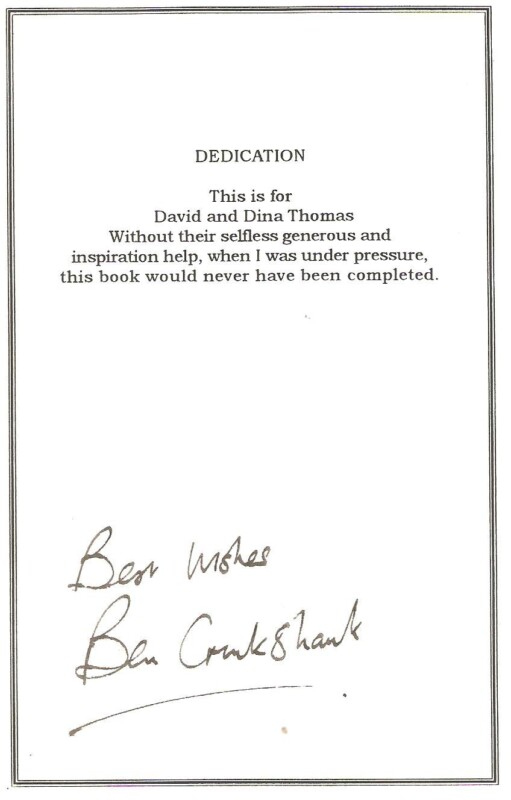 DEDICATION
This is for
David and Dina Thomas
Without their selfless generous and
inspiration help, when I was under pressure,
this book would never have been completed.
Best Wishes
Ben Cruikshank